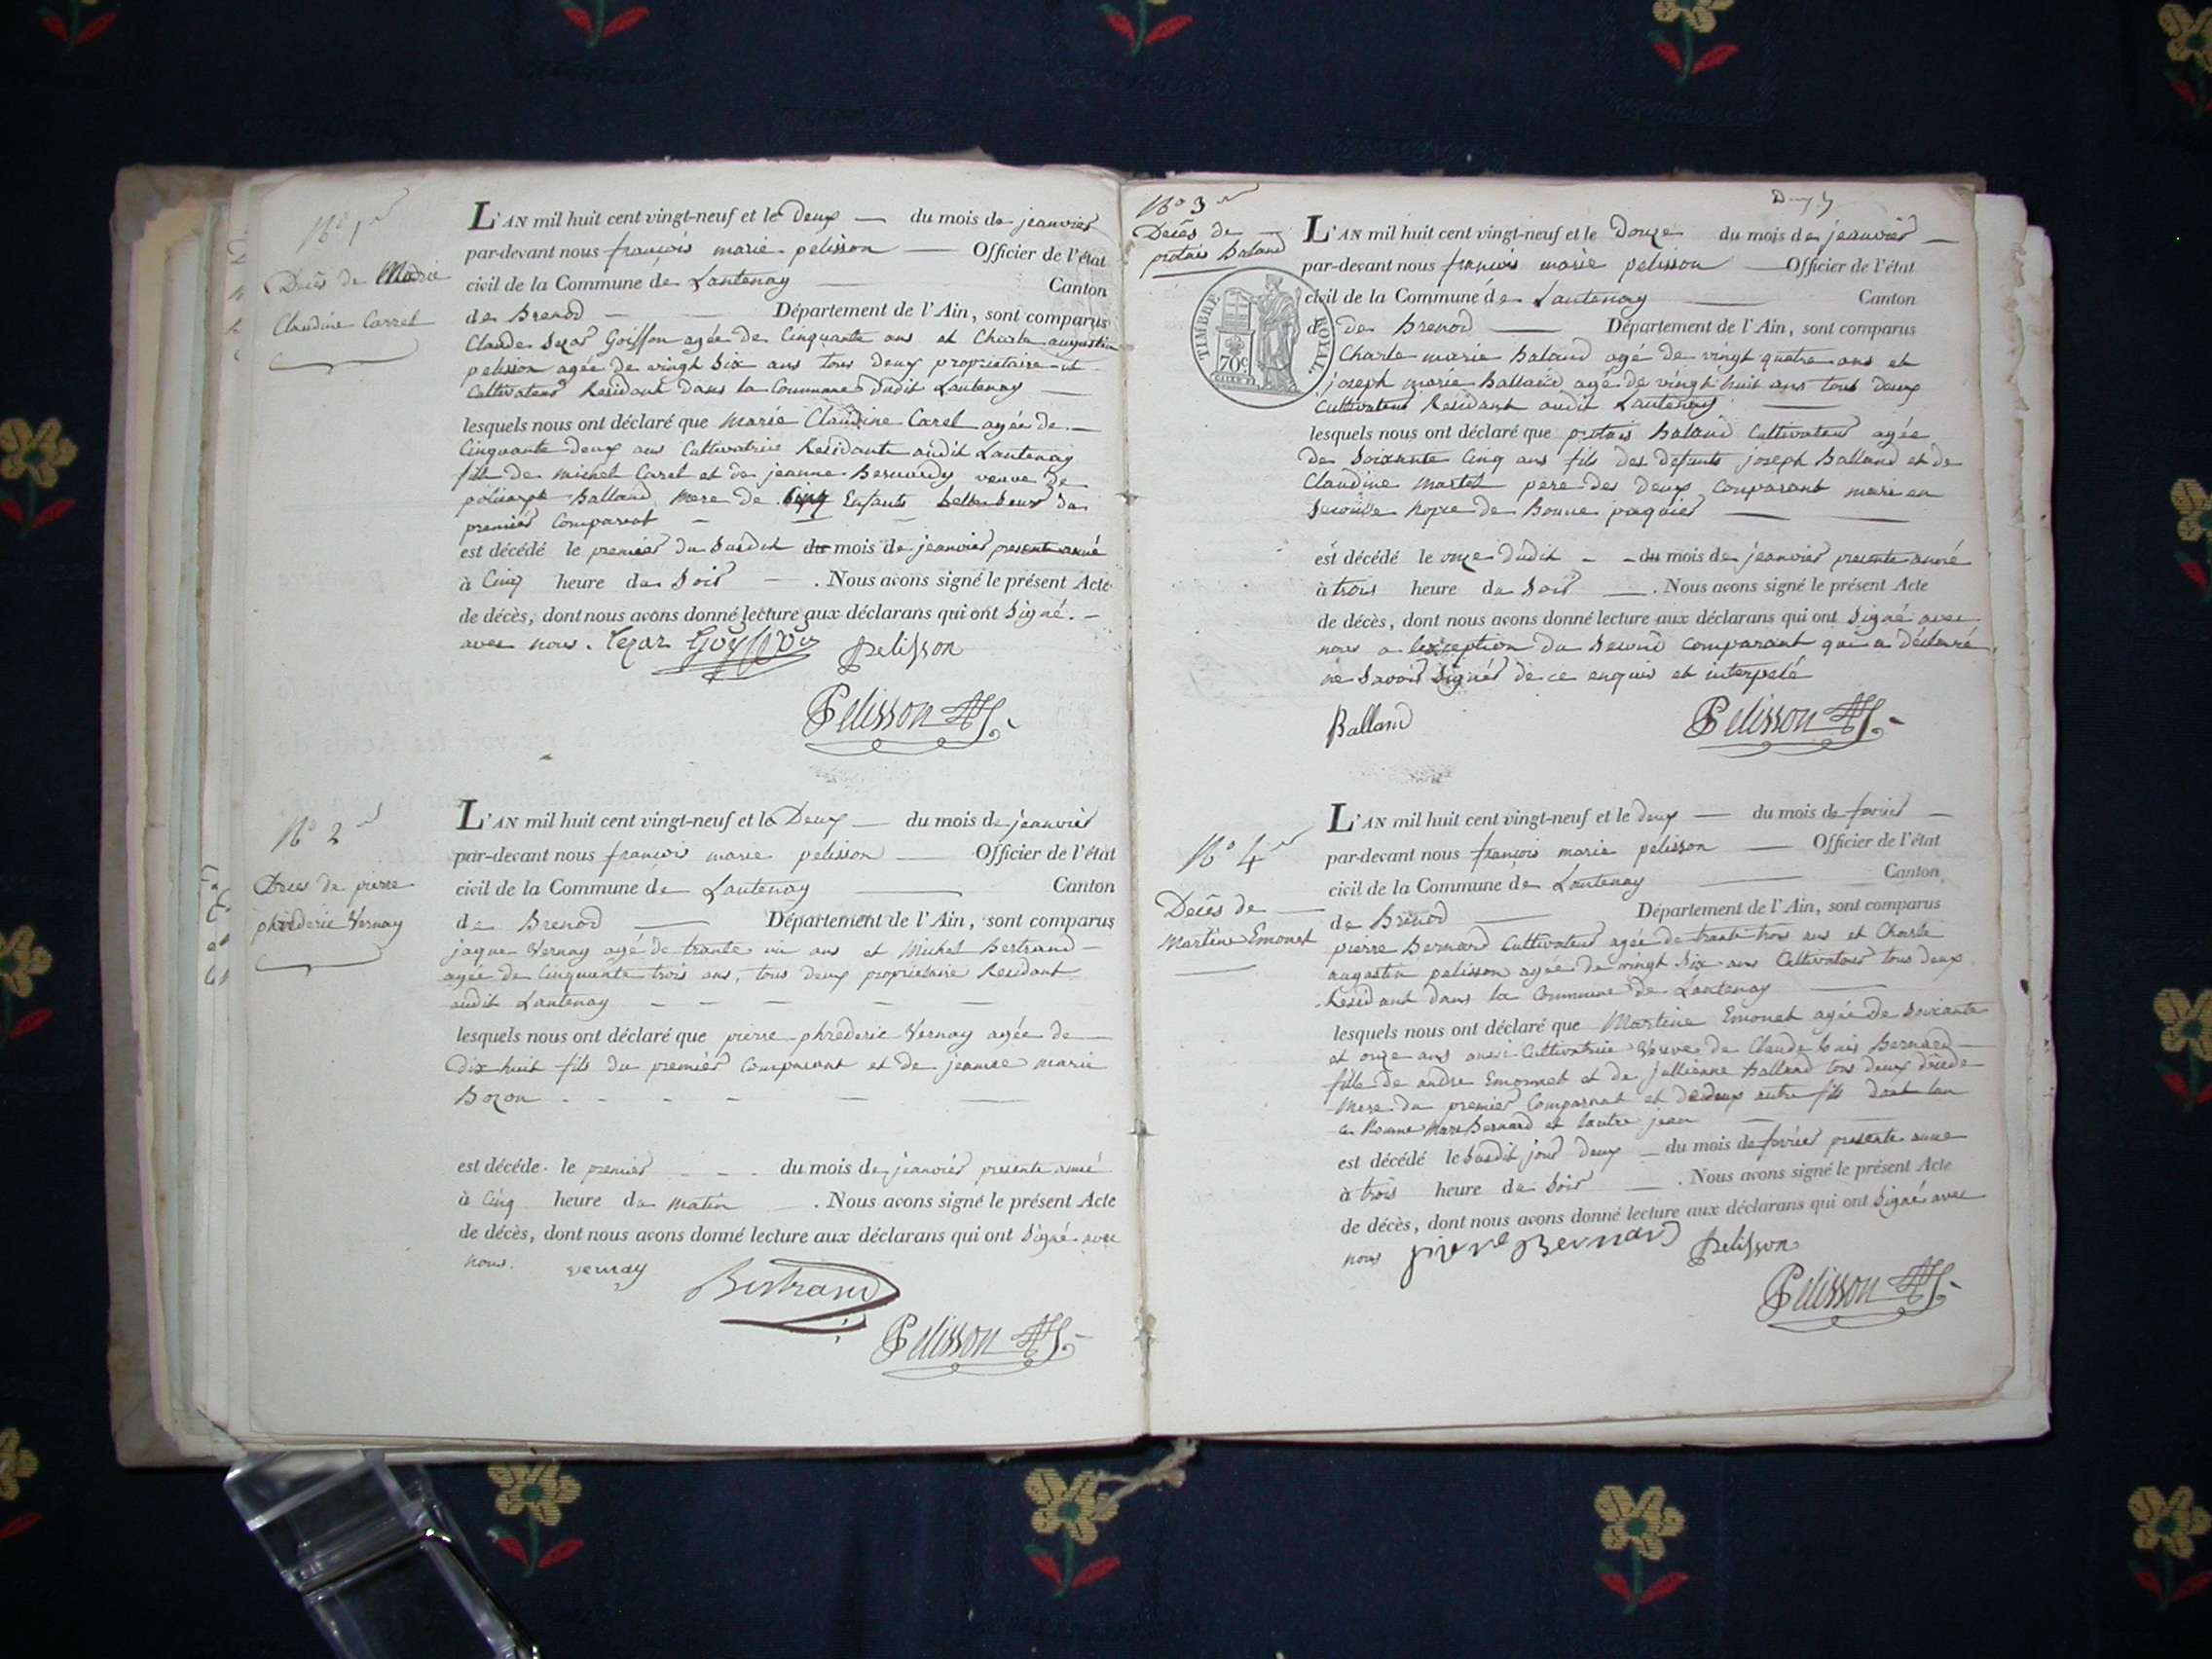 No 1er
Decês de Marie
Claudine Carrel
L'AN mil huit cent vingt-neuf et le Deux du mois de jeanvier
par-devant nous françois marie pelisson Officier de l'état
civil de la Commune de Lantenay Canton
de Brenod Département de l'Ain, sont comparus
Claude Sezar Goiffon agée de Cinquante ans et Charle augustin
pelisson agée de vingt Six ans tous deux proprietaire et
Cultivateur Residant dans la Commune dudit Lantenay
lesquels nous ont déclaré que Marie Claudine Carel agée de
Cinquante deux ans Cultivatrice Residante audit Lantenay
fille de michel Carel et de jeanne Bernardy veuve de
policarpe Balland Mere de Cinq Enfants belle Seur du
premier Comparent
est décédé le premier du Susdit du mois de jeanvier presente anné
à Cinq heure du Soir . Nous avons signé le présent Acte
de décès, dont nous avons donné lecture aux déclarans qui ont Signé.
avec nous. Cezar Goyffon Pelisson
Pelisson
No 2
Deces de pierre
phréderic Vernay
L'AN mil huit cent vingt-neuf et le Deux du mois de jeanvier
par-devant nous françois marie pelisson Officier de l'état
civil de la Commune de Lantenay Canton
de Brenod Département de l'Ain, sont comparus
jaque Vernay agé de trante ans et Michel Bertrand
agée de Cinquante trois ans, tous deux proprietaire Residant
audit Lantenay
lesquels nous ont déclaré que pierre phréderic Vernay agée de
Dix huit fils du premier Comparant et de jeanne marie
Bozon
est décéde le premier du mois de jeanvier presente anné
à Cinq heure du Matin . Nous avons signé le présent Acte
de décès, dont nous avons donné lecture aux déclarans qui ont Signé avec
nous. vernay Bertrand
Pelisson
No 3
Decês de
protais Baland
TIMBRE ROYAL
70c
L'AN mil huit cent vingt-neuf et le Douze du mois de jeanvier
par-devant nous françois marie pelisson Officier de l'état
civil de la Commune de Lantenay Canton
de de Brenod Département de l'Ain, sont comparus
Charle marie Baland agé de vingt quatre ans et
joseph marie Balland agé de vingt huit ans tous deux
Cultivateur Residant audit Lantenay
lesquels nous ont déclaré que protais Baland Cultivateur agée
de Soixante Cinq ans fils des defunts joseph Balland et de
Claudine Martel pere des deux Comparant mari en
Seconde Nopce de Bonne paquier
est décédé le onze dudit du mois de jeanvier presente anné
à trois heure du Soir . Nous avons signé le présent Acte
de décès, dont nous avons donné lecture aux déclarans qui ont Signé avec
nous a lexception du Second Comparant qui a déclaré
ne Savoir Signer de ce enquis et interpelé
Balland Pelisson
No 4
Decês de
Martine Emonet
L'AN mil huit cent vingt-neuf et le deux du mois de fevrier
par-devant nous françois marie pelisson Officier de l'état
civil de la Commune de Lantenay Canton
de Brenod Département de l'Ain, sont comparus
pierre Bernard Cultivateur agée de trante trois ans et Charle
augustin pelisson agée de vingt Six ans Cultivateur tous deux
Residant dans la Commune de Lantenay
lesquels nous ont déclaré que Martine Emonet agée de Soixante
et onze ans aussi Cultivatrice Veuve de Claude louis Bernard
fille de andre Emonnet et de jullienne Balland tous deux décede
Mere du premier Comparant et de deux autre fils dont lun
ce Nomme Marc Bernard et lautre jean
est décédé le Susdit jour deux du mois de fevrier presente anne
à trois heure du Soir . Nous avons signé le présent Acte
de décès, dont nous avons donné lecture aux déclarans qui ont Signé avec
nous pierre Bernard Pelisson
Pelisson